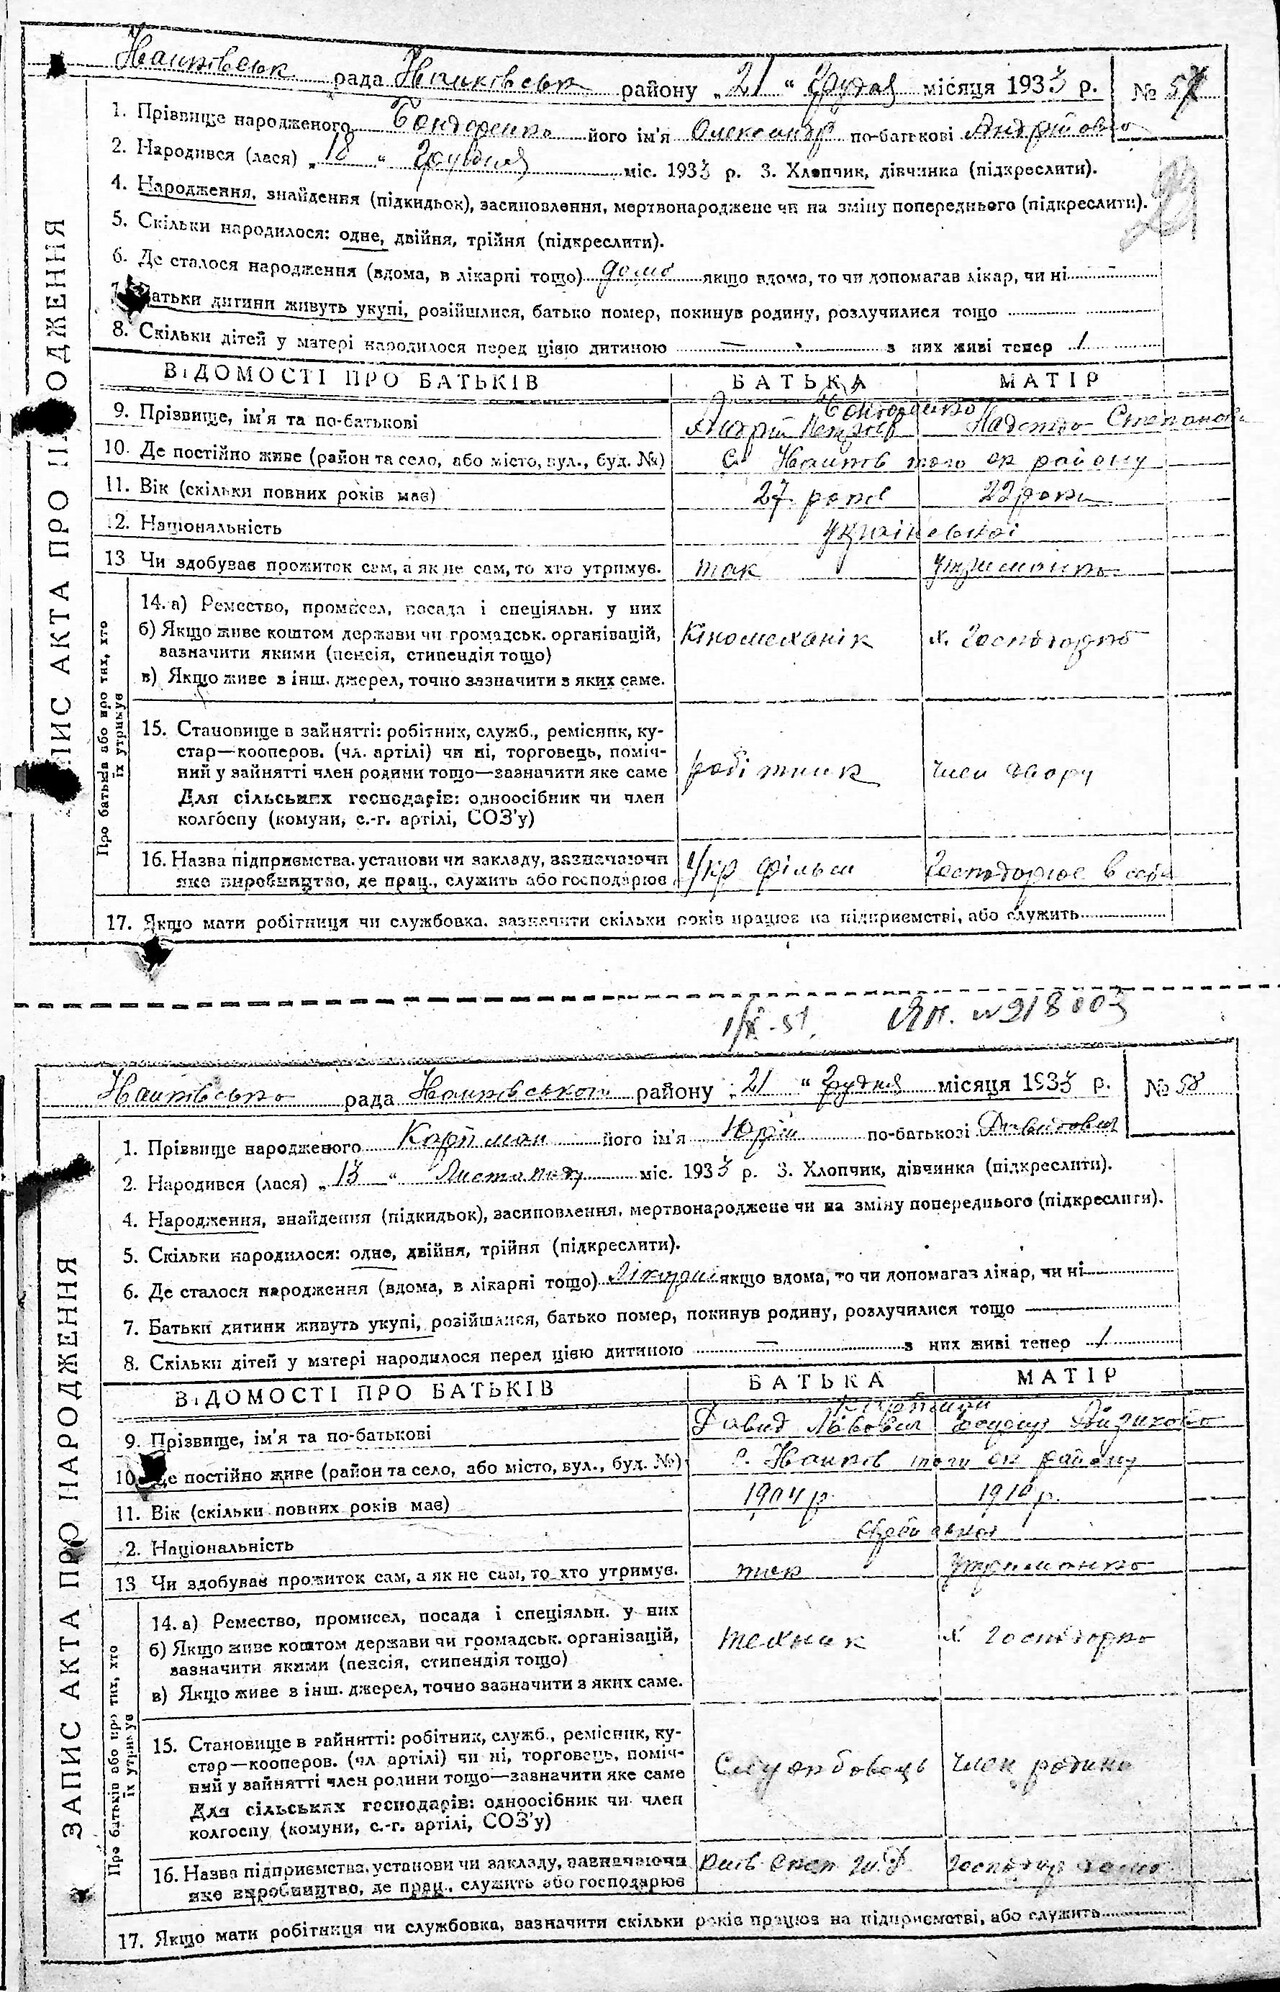 рада району „21“ Грудня місяця 1933 р. № 57
1. Прізвище народженого Бондоренко його ім'я Олександр по-батькові Андрійович
2. Народився (лася) „18“ Грудня міс. 1933 р. 3. Хлопчик, дівчинка (підкреслити).
4. Народження, знайдення (підкидьок), засиновлення, мертвонароджене чи на зміну попереднього (підкреслити).
5. Скільки народилося: одне, двійня, трійня (підкреслити).
6. Де сталося народження (вдома, в лікарні тощо) дома якщо вдома, то чи допомагав лікар, чи ні
батьки дитини живуть укупі, розійшлися, батько помер, покинув родину, розлучилися тощо
8. Скільки дітей у матері народилося перед цією дитиною — з них живі тепер 1
ЗАПИС АКТА ПРО НАРОДЖЕННЯ
ВІДОМОСТІ ПРО БАТЬКІВ БАТЬКА МАТІР
Бондоренко
9. Прізвище, ім'я та по-батькові Андрій Петров Надежда Степанова
10. Де постійно живе (район та село, або місто, вул., буд. №) с. того ж району
11. Вік (скільки повних років має) 27 років 22 роки
12. Національність українські
13 Чи здобував прожиток сам, а як не сам, то хто утримує. так утриманка
Про батька або про тих, хто їх утримує
14. а) Ремество, промисел, посада і спеціяльн. у них
б) Якщо живе коштом держави чи громадськ. організацій,
вазначити якими (пенсія, стипендія тощо) Кіномеханік х. Господарка
в) Якщо живе з інш. джерел, точно зазначити з яких саме.
15. Становище в зайнятті: робітник, служб., ремісник, ку-
стар—кооперов. (чл. артілі) чи ні, торговець, поміч-
ний у зайнятті член родини тощо—зазначити яке саме робітник член двору
Для сільських господарів: одноосібник чи член
колгоспу (комуни, с.-г. артілі, СОЗ'у)
16. Назва підприємства, установи чи закладу, зазначаючи Укр фільм Господарює в
яке виробництво, де прац., служить або господарює
17. Якщо мати робітниця чи службовка, зазначити скільки років працює на підприємстві, або служить
№ 918003
рада району „21“ Грудня місяця 1933 р. № 58
1. Прізвище народженого його ім'я Юрій по-батькові Давидович
2. Народився (лася) „13“ Листопаду міс. 1933 р. 3. Хлопчик, дівчинка (підкреслити).
4. Народження, знайдення (підкидьок), засиновлення, мертвонароджене чи на зміну попереднього (підкреслити).
5. Скільки народилося: одне, двійня, трійня (підкреслити).
6. Де сталося народження (вдома, в лікарні тощо) Лікарні якщо вдома, то чи допомагав лікар, чи ні
7. Батьки дитини живуть укупі, розійшлися, батько помер, покинув родину, розлучилися тощо
8. Скільки дітей у матері народилося перед цією дитиною — з них живі тепер 1
ЗАПИС АКТА ПРО НАРОДЖЕННЯ
ВІДОМОСТІ ПРО БАТЬКІВ БАТЬКА МАТІР
9. Прізвище, ім'я та по-батькові Давид Львович
10. Де постійно живе (район та село, або місто, вул., буд. №) с. того ж району
11. Вік (скільки повних років має) 1904 р. 1910 р.
2. Національність
13 Чи здобував прожиток сам, а як не сам, то хто утримує. так утриманка
Про батьків або про тих, хто їх утримує
14. а) Ремество, промисел, посада і спеціяльн. у них
б) Якщо живе коштом держави чи громадськ. організацій,
вазначити якими (пенсія, стипендія тощо) технік х. Господарка
в) Якщо живе з інш. джерел, точно зазначити з яких саме.
15. Становище в зайнятті: робітник, служб., ремісник, ку-
стар—кооперов. (чл. артілі) чи ні, торговець, поміч-
ний у зайнятті член родини тощо—зазначити яке саме Службовець Член родини
Для сільських господарів: одноосібник чи член
колгоспу (комуни, с.-г. артілі, СОЗ'у)
16. Назва підприємства, установи чи закладу, зазначаючи
яке виробництво, де прац., служить або господарює
17. Якщо мати робітниця чи службовка, зазначити скільки років працює на підприємстві, або служить